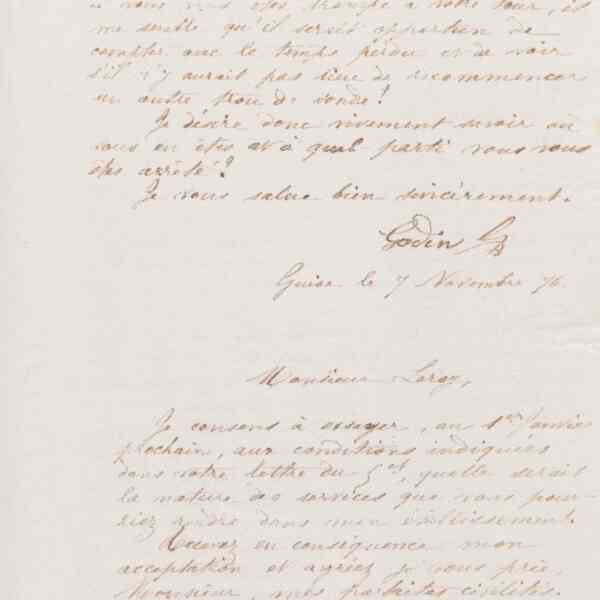 vous vous êtes trompé à votre tour, il
me semble qu'il serait opportun de
compter avec le temps perdu et de voir
s'il n'y aurait pas lieu de recommencer
un autre trou de sonde!
Je désire donc vivement savoir où
vous en êtes et à quel parti vous vous
êtes arrêté?
Je vous salue bien sincèrement.
Godin
Guise le 7 Novembre 76.
Monsieur Leroy,
Je consens à essayer, au 1er Janvier
prochain, aux conditions indiquées
dans votre lettre du 5 ct, quelle serait
la nature des services que vous pour-
riez rendre dans mon établissement.
Recevez en conséquence mon
acceptation et agréez je vous prie,
Monsieur, mes parfaites civilités.